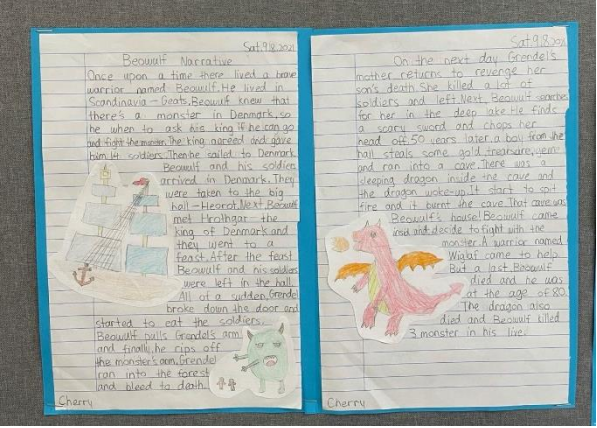 Sat.9.18.2021
Beowulf Narrative
Once upon a time there lived a brave
warrior named Beowulf. He lived in
Scandinavia - Geats. Beowulf knew that
there's a monster in Denmark, so
he when to ask his king if he can go
and fight the monster. The king agreed and gave
him 14 soldiers. Then he sailed to Denmark
Beowulf and his soldier
arrived in Denmark. They
were taken to the big
hall - Heorot. Next Beowulf
met Hrothgar the
king of Denmark and
they went to a
feast. After the feast
Beowulf and his soldiers
were left in the hall.
All of a sudden, Grendel
broke down the door and
started to eat the soldiers.
Beowulf pulls Grendel's arm
and finally, he rips off
the monster's arm. Grendel
ran into the forest
and bleed to death.
Cherry
Sat.9.18.2021
On the next day Grendel's
mother returns to revenge her
son's death. She killed a lot of
soldiers and left. Next, Beowulf searches
for her in the deep lake. He finds
a scary sword and chops her
head off. 50 years later, a boy from the
hall steals some gold, treasure, went
and ran into a cave. There was a
sleeping dragon inside the cave and
the dragon woke up. It start to spit
fire and it burnt the cave. That cave was
Beowulf's house! Beowulf came
and decide to fight with the
monster. A warrior named
Wiglaf came to help.
But a last, Beowulf
died and he was
at the age of 80.
The dragon also
died and Beowulf killed
3 monster in his live.
Cherry